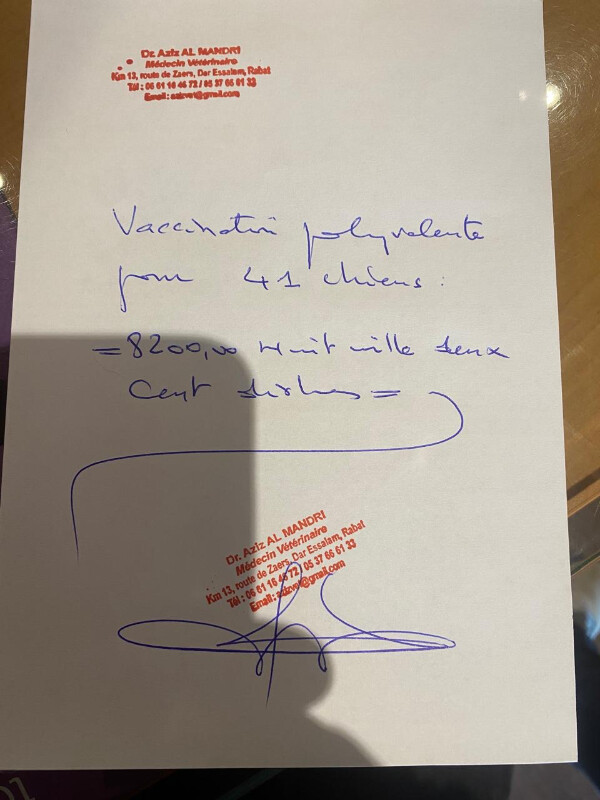 Dr. Aziz AL MANDRI
Médecin Vétérinaire
Km 13, route de Zaers, Dar Essalam, Rabat
Tél : 06 61 16 46 72 / 05 37 66 61 33
Email : azizvet@gmail.com
Vaccination polyvalente
pour 41 chiens :
=8200,00 Huit mille deux
Cent dirhams=
Dr. Aziz AL MANDRI
Médecin Vétérinaire
Km 13, route de Zaers, Dar Essalam, Rabat
Tél : 06 61 16 46 72 / 05 37 66 61 33
Email : azizvet@gmail.com